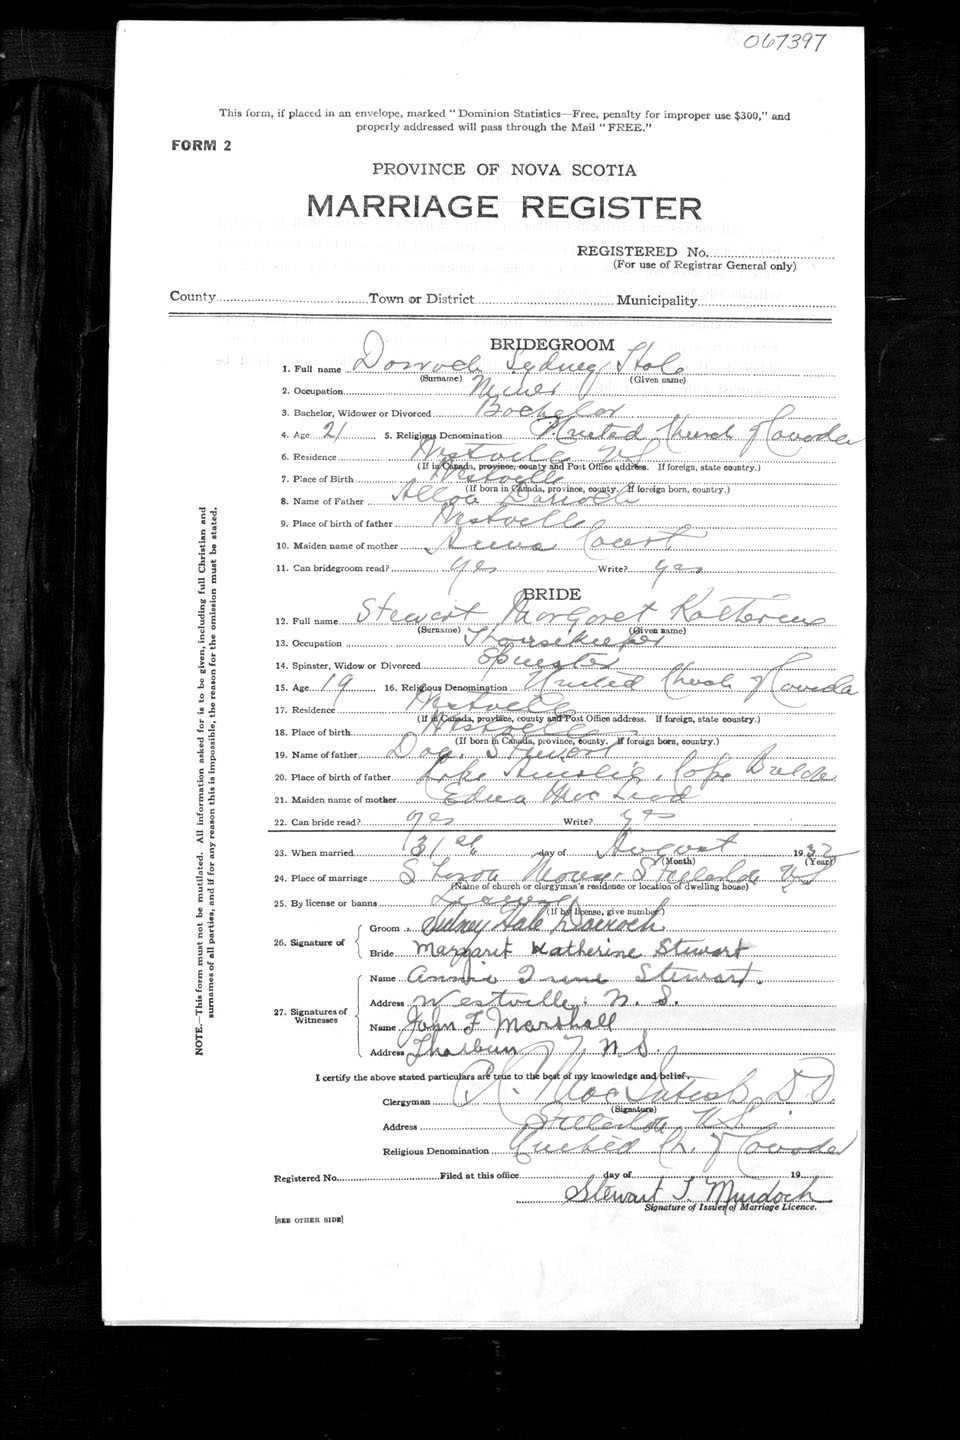 067397
This form, if placed in an envelope, marked "Dominion Statistics—Free, penalty for improper use $300," and
properly addressed will pass through the Mail "FREE."
FORM 2
PROVINCE OF NOVA SCOTIA
MARRIAGE REGISTER
REGISTERED No.
(For use of Registrar General only)
County Town or District Municipality
BRIDEGROOM
1. Full name Dorroch Sydney Hale
(Surname) (Given name)
2. Occupation Miner
3. Bachelor, Widower or Divorced Bachelor
4. Age 21 5. Religious Denomination United Church of Canada
6. Residence Westville NS
(If in Canada, province, county and Post Office address. If foreign, state country.)
7. Place of Birth Westville
(If born in Canada, province, county. If foreign born, country.)
8. Name of Father Darroch
9. Place of birth of father Westville
10. Maiden name of mother
11. Can bridegroom read? yes Write? yes
BRIDE
12. Full name Stewart Margaret Katherine
(Surname) (Given name)
13. Occupation Housekeeper
14. Spinster, Widow or Divorced Spinster
15. Age 19 16. Religious Denomination United Church of Canada
17. Residence Westville
(If in Canada, province, county and Post Office address. If foreign, state country.)
18. Place of birth Westville
(If born in Canada, province, county. If foreign born, country.)
19. Name of father Dan Stewart
20. Place of birth of father Lake Ainslie, Cape Breton
21. Maiden name of mother Edna MacLeod
22. Can bride read? yes Write? yes
23. When married 31st day of August 1932
(Month) (Year)
24. Place of marriage Stellarton NS
(Name of church or clergyman's residence or location of dwelling house)
25. By license or banns License
(If by license, give number)
26. Signature of
Groom Sidney Hale Darroch
Bride Margaret Katherine Stewart
27. Signatures of Witnesses
Name Annie Irene Stewart.
Address Westville, N. S.
Name John F Marshall
Address Thorburn N. S.
I certify the above stated particulars are true to the best of my knowledge and belief.
Clergyman MacIntosh D.D.
(Signature)
Address Stellarton, N.S.
Religious Denomination United Ch. of Canada
Registered No. Filed at this office day of 19
Stewart J. Murdoch
Signature of Issuer of Marriage Licence.
[SEE OTHER SIDE]
NOTE.—This form must not be mutilated. All information asked for is to be given, including full Christian and
surnames of all parties, and if for any reason this is impossible, the reason for the omission must be stated.